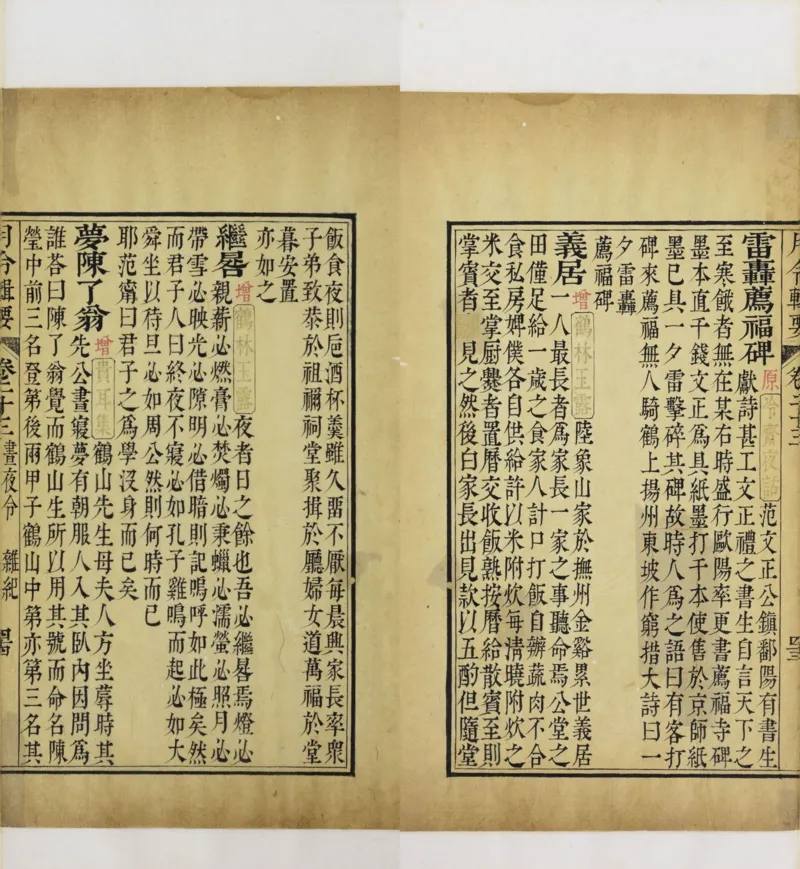 月令輯要 卷二十三
雷轟薦福碑 原 冷齋夜話 范文正公鎮鄱陽有書生
獻詩甚工文正禮之書生自言天下之
至寒餓者無在某右時盛行歐陽率更書薦福寺碑
墨本直千錢文正為具紙墨打千本使售於京師紙
墨已具一夕雷擊碎其碑故時人為之語曰有客打
碑來薦福無人騎鶴上揚州東坡作窮措大詩曰一
夕雷轟
薦福碑
義居 增 鶴林玉露 陸象山家於撫州金谿累世義居
一人最長者為家長一家之事聽命焉公堂之
田僅足給一歲之食家人計口打飯自辦蔬肉不合
食私房婢僕各自供給許以米附炊每清曉附炊之
米交至掌厨爨者置曆交收飯熟按曆給散賓至則
掌賓者 見之然後白家長出見款以五酌但隨堂
飯食夜則巵酒杯羹雖久畱不厭每晨興家長率衆
子弟致恭於祖禰祠堂聚揖於廳婦女道萬福於堂
暮安置
亦如之
繼晷 增 鶴林玉露 夜者日之餘也吾必繼晷焉燈必
親薪必燃膏必焚燭必秉蠟必濡螢必照月必
帶雪必映光必隙明必借暗則記嗚呼如此極矣然
而君子人曰終夜不寢必如孔子雞鳴而起必如大
舜坐以待旦必如周公然則何時而已
耶范甯曰君子之為學沒身而已矣
夢陳了翁 增 貴耳集 鶴山先生母夫人方坐蓐時其
先公晝寢夢有朝服人入其臥內因問為
誰荅曰陳了翁覺而鶴山生所以用其號而命名陳
瑩中前三名登第後兩甲子鶴山中第亦第三名其
月令輯要 卷二十三 晝夜令 雜紀